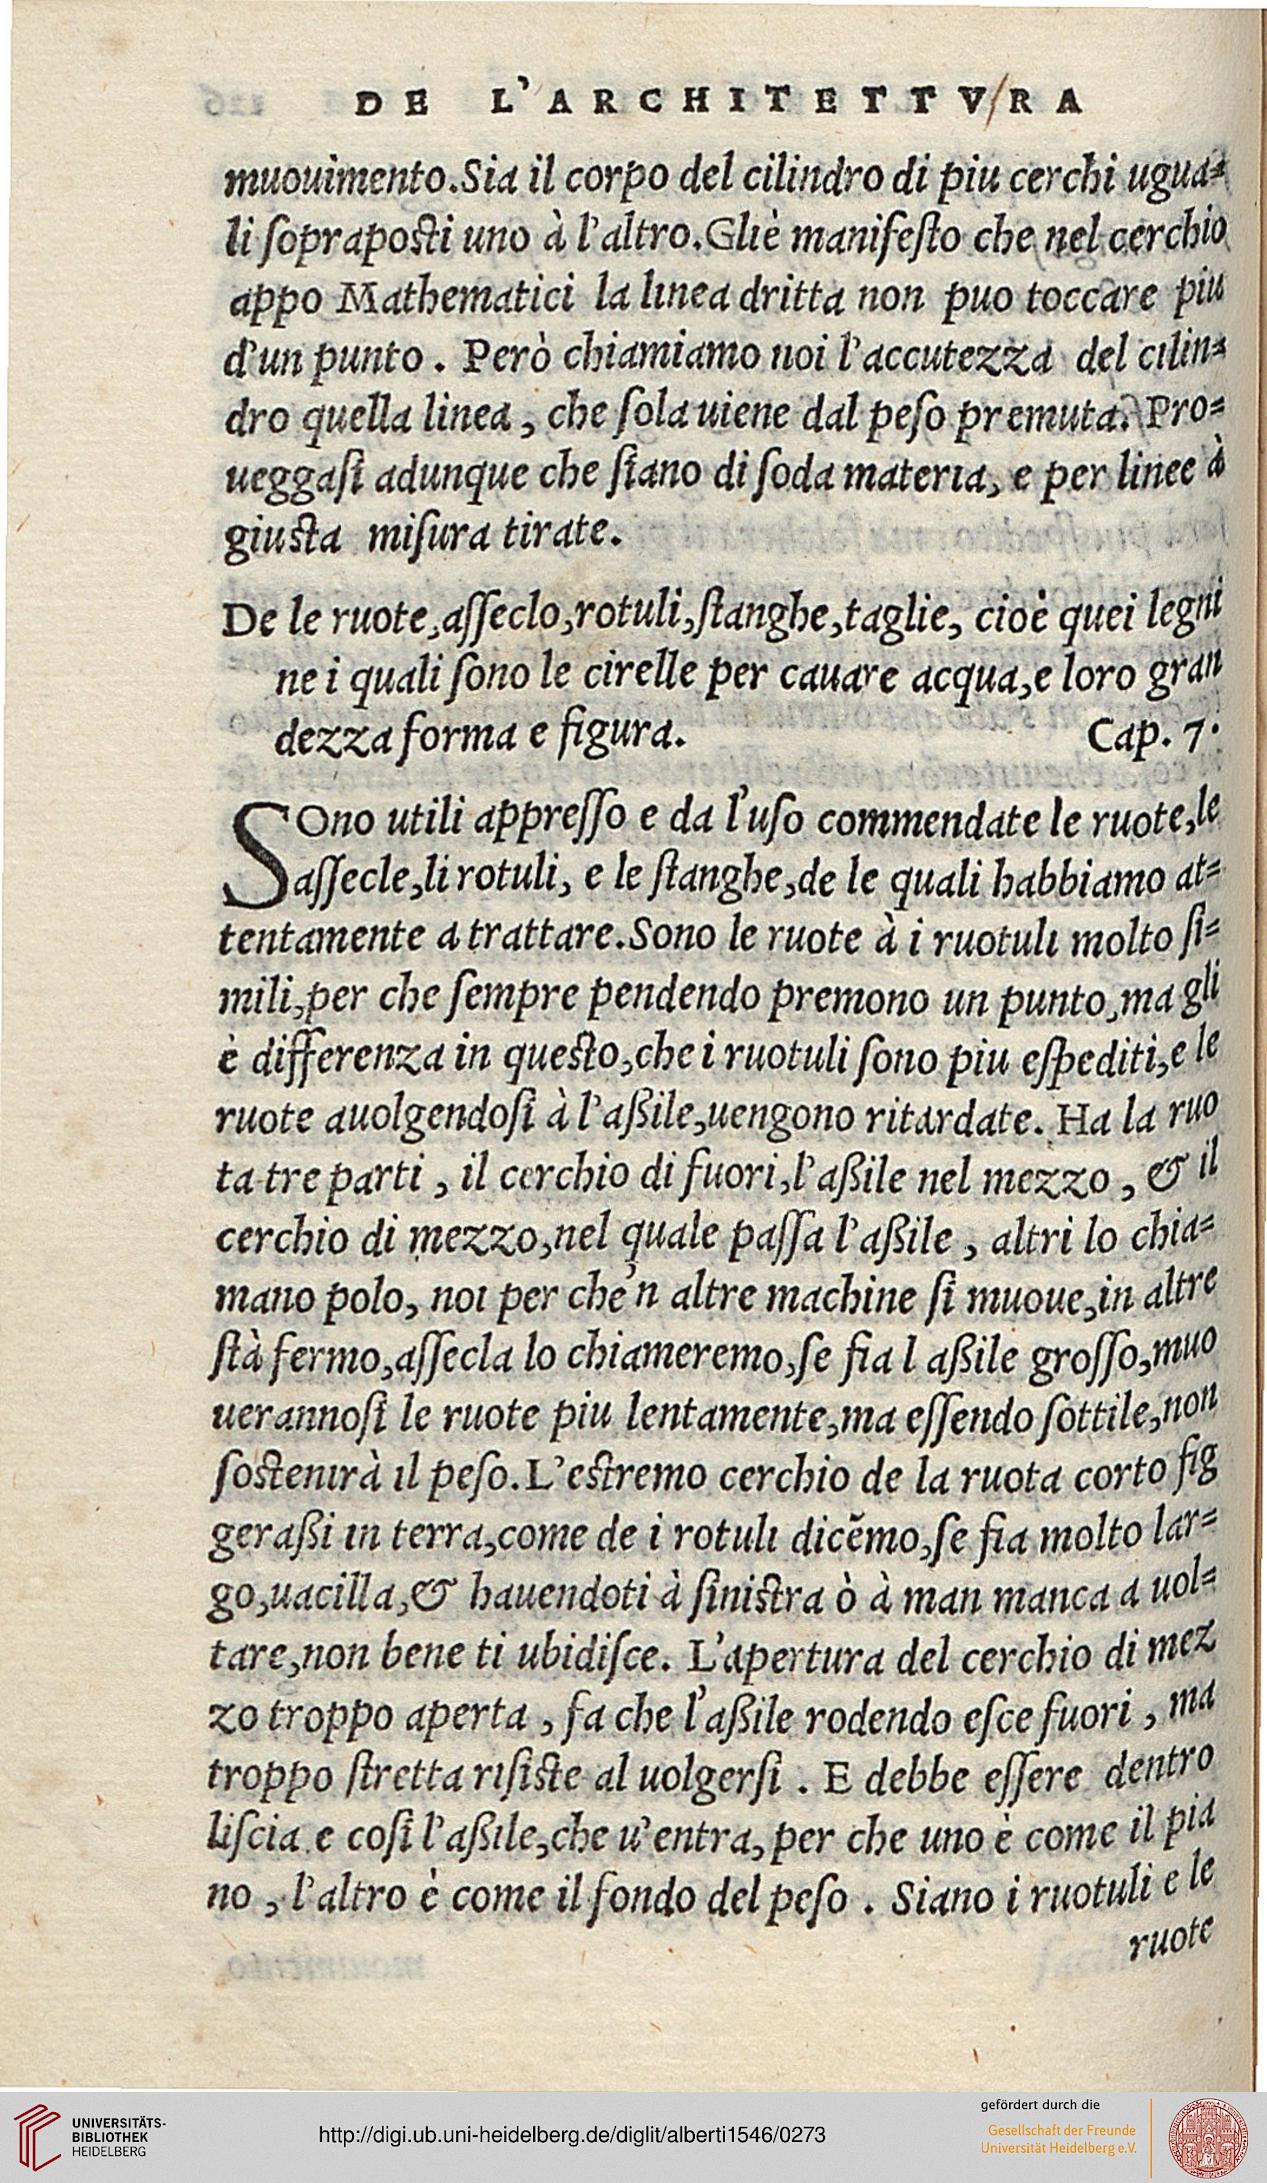 DE L'ARCHITETTVRA
muouimento.Sia il corpo del cilindro di piu cerchi ugua=
li ſopraposti uno à l'altro.Gliè manifeſto che nel cerchio
appo Mathematici la linea dritta non puo toccare piu
d'un punto . Però chiamiamo noi l'accutezza del cilin=
dro quella linea , che ſola uiene dal peſo premuta. Pro=
ueggaſi adunque che ſiano di ſoda materia, e per linee à
giusta miſura tirate.
De le ruote,aſſeclo,rotuli,ſtanghe,taglie, cioè quei legni
ne i quali ſono le cirelle per cauare acqua,e loro gran
dezza forma e figura. Cap. 7.
SOno utili appreſſo e da l'uſo commendate le ruote,le
aſſecle,li rotuli, e le ſtanghe,de le quali habbiamo at=
tentamente a trattare.Sono le ruote à i ruotuli molto ſi=
mili,per che ſempre pendendo premono un punto,ma gli
è differenza in questo,che i ruotuli ſono piu eſpediti,e le
ruote auolgendoſi à l'aßile,uengono ritardate. Ha la ruo
ta tre parti , il cerchio di fuori,l'aßile nel mezzo , & il
cerchio di mezzo,nel quale paſſa l'aßile , altri lo chia=
mano polo, noi per che'n altre machine ſi muoue,in altre
ſtà fermo,aſſecla lo chiameremo,ſe fia l aßile groſſo,muo
uerannoſi le ruote piu lentamente,ma eſſendo ſottile,non
ſostenirà il peſo.L'estremo cerchio de la ruota corto fig
geraßi in terra,come de i rotuli dicẽmo,ſe fia molto lar=
go,uacilla,& hauendoti à ſinistra ò à man manca a uol=
tare,non bene ti ubidiſce. L'apertura del cerchio di mez
zo troppo aperta , fa che l'aßile rodendo eſce fuori , ma
troppo ſtretta riſiste al uolgerſi . E debbe eſſere dentro
liſcia e coſi l'aßile,che u'entra,per che uno è come il pia
no , l'altro è come il fondo del peſo . Siano i ruotuli e le
ruote
UNIVERSITÄTS-
BIBLIOTHEK
HEIDELBERG
http://digi.ub.uni-heidelberg.de/diglit/alberti1546/0273
gefördert durch die
Gesellschaft der Freunde
Universität Heidelberg e.V.